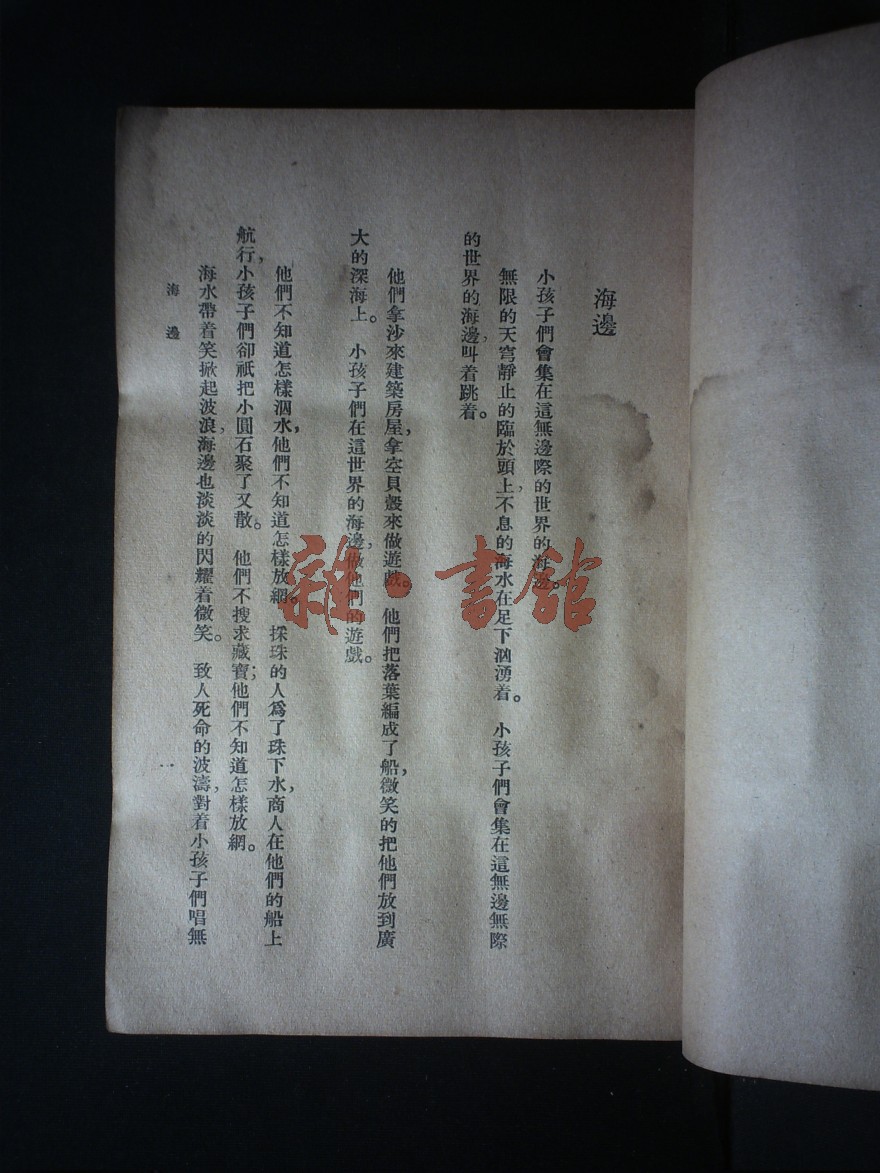 海邊
小孩子們會集在這無邊際的世界的海邊。
無限的天穹靜止的臨於頭上，不息的海水在足下汹湧着。 小孩子們會集在這無邊無際
的世界的海邊，叫着跳着。
他們拿沙來建築房屋，拿空貝殼來做遊戲。 他們把落葉編成了船，微笑的把他們放到廣
大的深海上。 小孩子們在這世界的海邊，做他們的遊戲。
他們不知道怎樣泅水，他們不知道怎樣放網。 採珠的人爲了珠下水，商人在他們的船上
航行，小孩子們卻祇把小圓石聚了又散。 他們不搜求藏寶；他們不知道怎樣放網。
海水帶着笑掀起波浪，海邊也淡淡的閃耀着微笑。 致人死命的波濤，對着小孩子們唱無
海邊
一
雜·書館